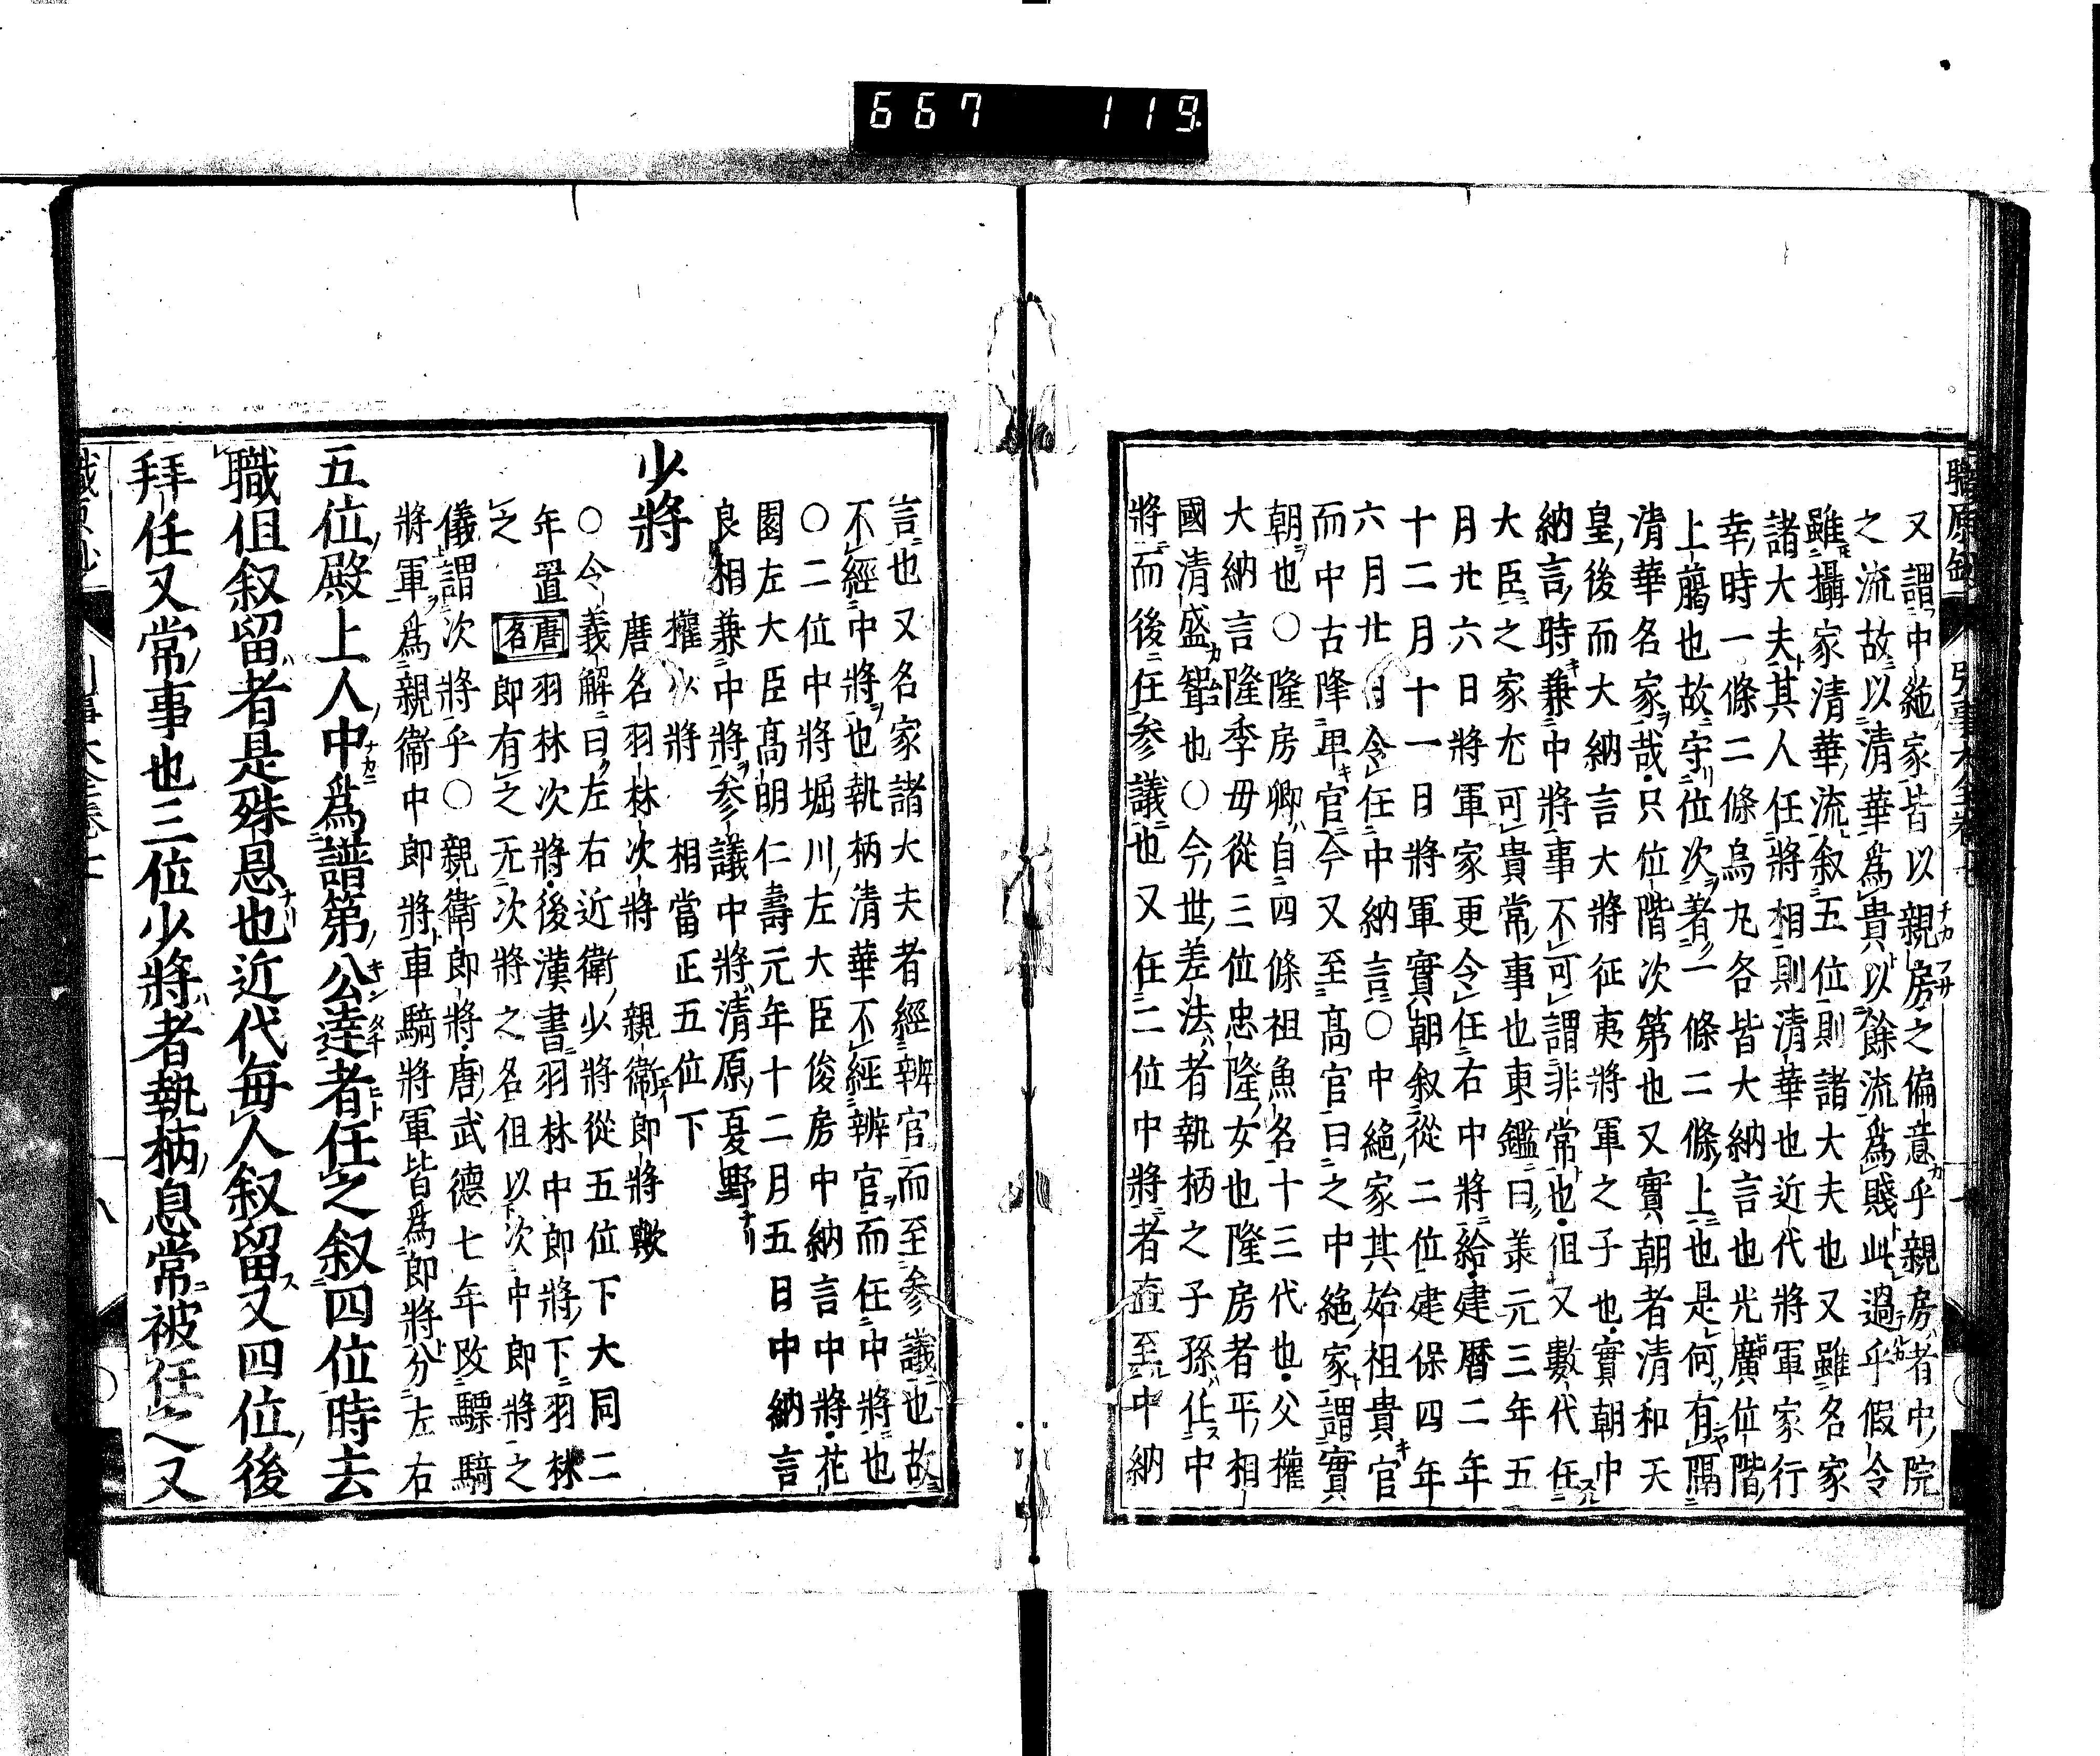 667 119
職原鈔 引事大全卷十
又謂中絶家皆以親房之偏意乎親房者中院
之流故以清華爲貴以餘流爲賤此過乎假令
雖攝家清華流叙五位則諸大夫也又雖名家
諸大夫其人任將相則清華也近代將軍家行
幸時一條二條烏丸各皆大納言也光廣位階
上﨟也故守位次著一條二條上也是何有隔
清華名家哉只位階次第也又實朝者清和天
皇後而大納言大將征夷將軍之子也實朝中
納言時兼中將事不可謂非常也但又數代任
大臣之家尤可貴常事也東鑑曰義元三年五
月廿六日將軍家更令任右中將給建暦二年
十二月十一日將軍實朝叙從二位建保四年
六月廿日令任中納言〇中絶家其始祖貴官
而中古降卑官今又至高官曰之中絶家謂實
朝也〇隆房卿自四條祖魚名十三代也父權
大納言隆季母從三位忠隆女也隆房者平相
國清盛聟也〇今世差法者執柄之子孫任中
將而後任参議也又任二位中將者直至中納
言也又名家諸大夫者經辨官而至参議也故
不經中將也執柄清華不經辨官而任中將也
〇二位中將堀川左大臣俊房中納言中將花
園左大臣高明仁壽元年十二月五日中納言
良相兼中將参議中將清原夏野
少將 權少將 相當正五位下
唐名羽林次將 親衞郎將歟
〇令義解曰左右近衛少將從五位下大同二
年置唐名羽林次將後漢書羽林中郎將下羽林
之即有之无次將之名但以次中郎將之
儀謂次將乎〇親衛郎將唐武德七年改驃騎
將軍爲親衞中郎將車騎將軍皆爲郎將分左右
五位殿上人中爲譜第公達者任之叙四位時去
職但叙留者是殊恩也近代毎人叙留又四位後
拜任又常事也三位少將者執柄息常被任之又
八